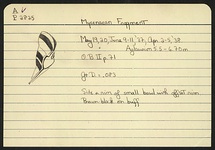 A V
P 2825
Mycenaean Fragment
May 19,20, June 9-11 '37, Apr 2-5 '38
+
Aglaurion 5.5-6.70m
O.B. II p. 71
Gr. D. = .083
Side & rim of small bowl with offset rim
Brown black on buff